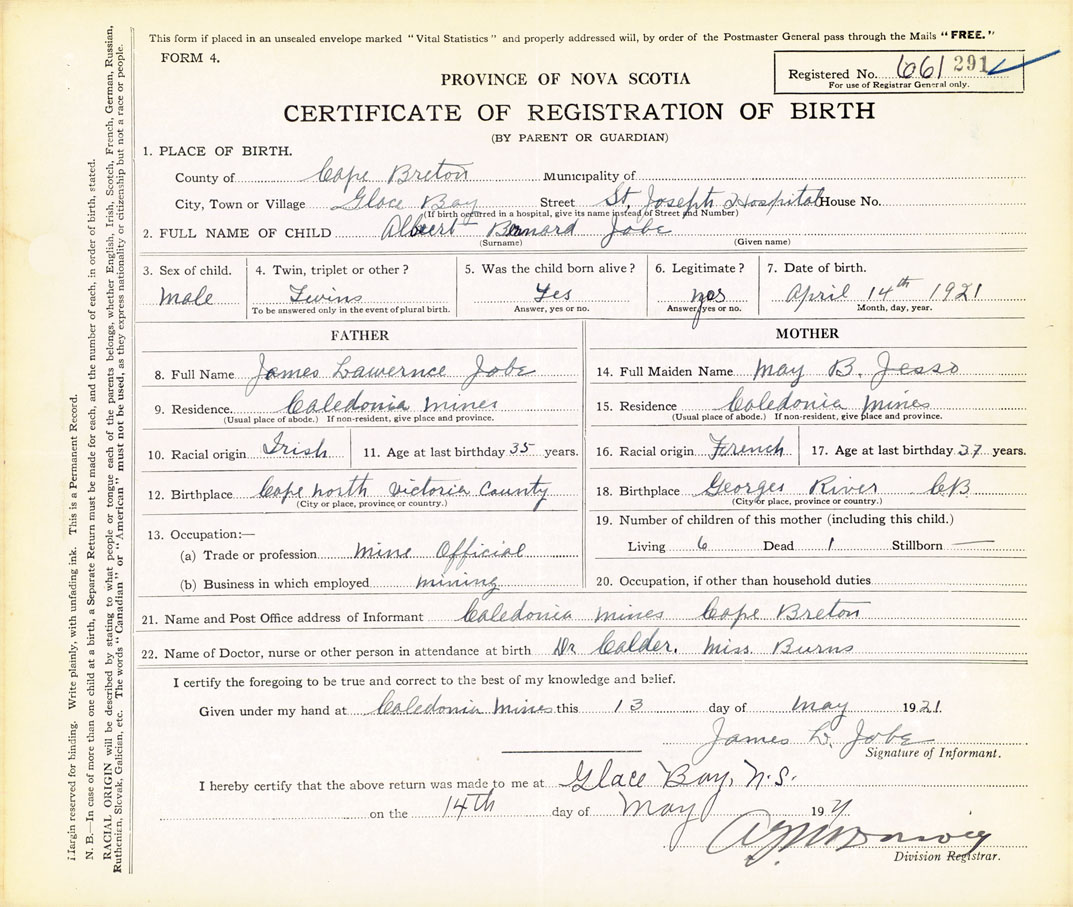 This form if placed in an unsealed envelope marked "Vital Statistics" and properly addressed will, by order of the Postmaster General pass through the Mails "FREE."
FORM 4.
Registered No. 661 291
For use of Registrar General only.
PROVINCE OF NOVA SCOTIA
CERTIFICATE OF REGISTRATION OF BIRTH
(BY PARENT OR GUARDIAN)
1. PLACE OF BIRTH.
County of Cape Breton Municipality of
City, Town or Village Glace Bay Street St. Joseph Hospital House No.
(If birth occurred in a hospital, give its name instead of Street and Number)
2. FULL NAME OF CHILD Albert Bernard Jobe
(Surname) (Given name)
3. Sex of child. 4. Twin, triplet or other? 5. Was the child born alive? 6. Legitimate? 7. Date of birth.
Male Twins Yes yes April 14th 1921
To be answered only in the event of plural birth. Answer, yes or no. Answer, yes or no. Month, day, year.
FATHER
8. Full Name James Lawernce Jobe
9. Residence. Caledonia Mines
(Usual place of abode.) If non-resident, give place and province.
10. Racial origin Irish 11. Age at last birthday 35 years.
12. Birthplace Cape North Victoria County
(City or place, province or country.)
13. Occupation:—
(a) Trade or profession Mine Official
(b) Business in which employed mining
MOTHER
14. Full Maiden Name May B. Jesso
15. Residence Caledonia Mines
(Usual place of abode.) If non-resident, give place and province.
16. Racial origin French 17. Age at last birthday 37 years.
18. Birthplace Georges River CB
(City or place, province or country.)
19. Number of children of this mother (including this child.)
Living 6 Dead 1 Stillborn —
20. Occupation, if other than household duties
21. Name and Post Office address of Informant Caledonia Mines Cape Breton
22. Name of Doctor, nurse or other person in attendance at birth Dr Calder. Miss. Burns
I certify the foregoing to be true and correct to the best of my knowledge and belief.
Given under my hand at Caledonia Mines this 13 day of May 1921.
James L. Jobe
Signature of Informant.
I hereby certify that the above return was made to me at Glace Bay, N.S.
on the 14th day of May 19
Division Registrar.
Margin reserved for binding. Write plainly, with unfading ink. This is a Permanent Record.
N. B.—In case of more than one child at a birth, a Separate Return must be made for each, and the number of each, in order of birth, stated.
RACIAL ORIGIN will be described by stating to what people or tongue each of the parents belongs, whether English, Irish, Scotch, French, German, Russian,
Ruthenian, Slovak, Galician, etc. The words "Canadian" or "American" must not be used, as they express nationality or citizenship but not a race or people.